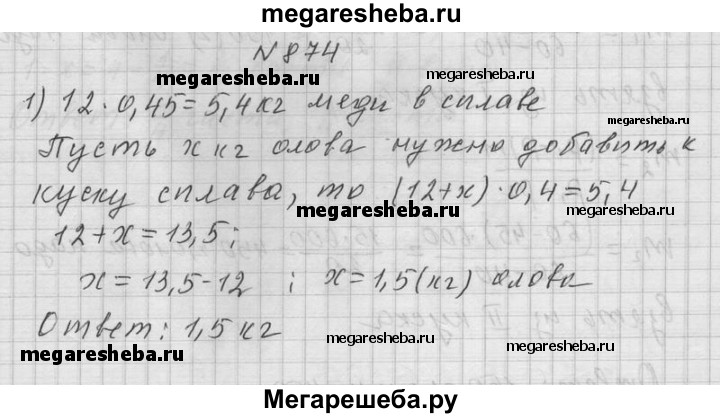 megaresheba.ru
№ 874
megaresheba.ru megaresheba.ru
1) 12 · 0,45 = 5,4 кг меди в сплаве
megaresheba.ru
Пусть x кг олова нужно добавить к
куску сплава, то (12+x) · 0,4 = 5,4
megaresheba.ru megaresheba.ru
12 + x = 13,5;
x = 13,5 - 12 ; x = 1,5 (кг) олова
Ответ: 1,5 кг
megaresheba.ru megaresheba.ru megaresheba.ru
Мегарешеба.ру